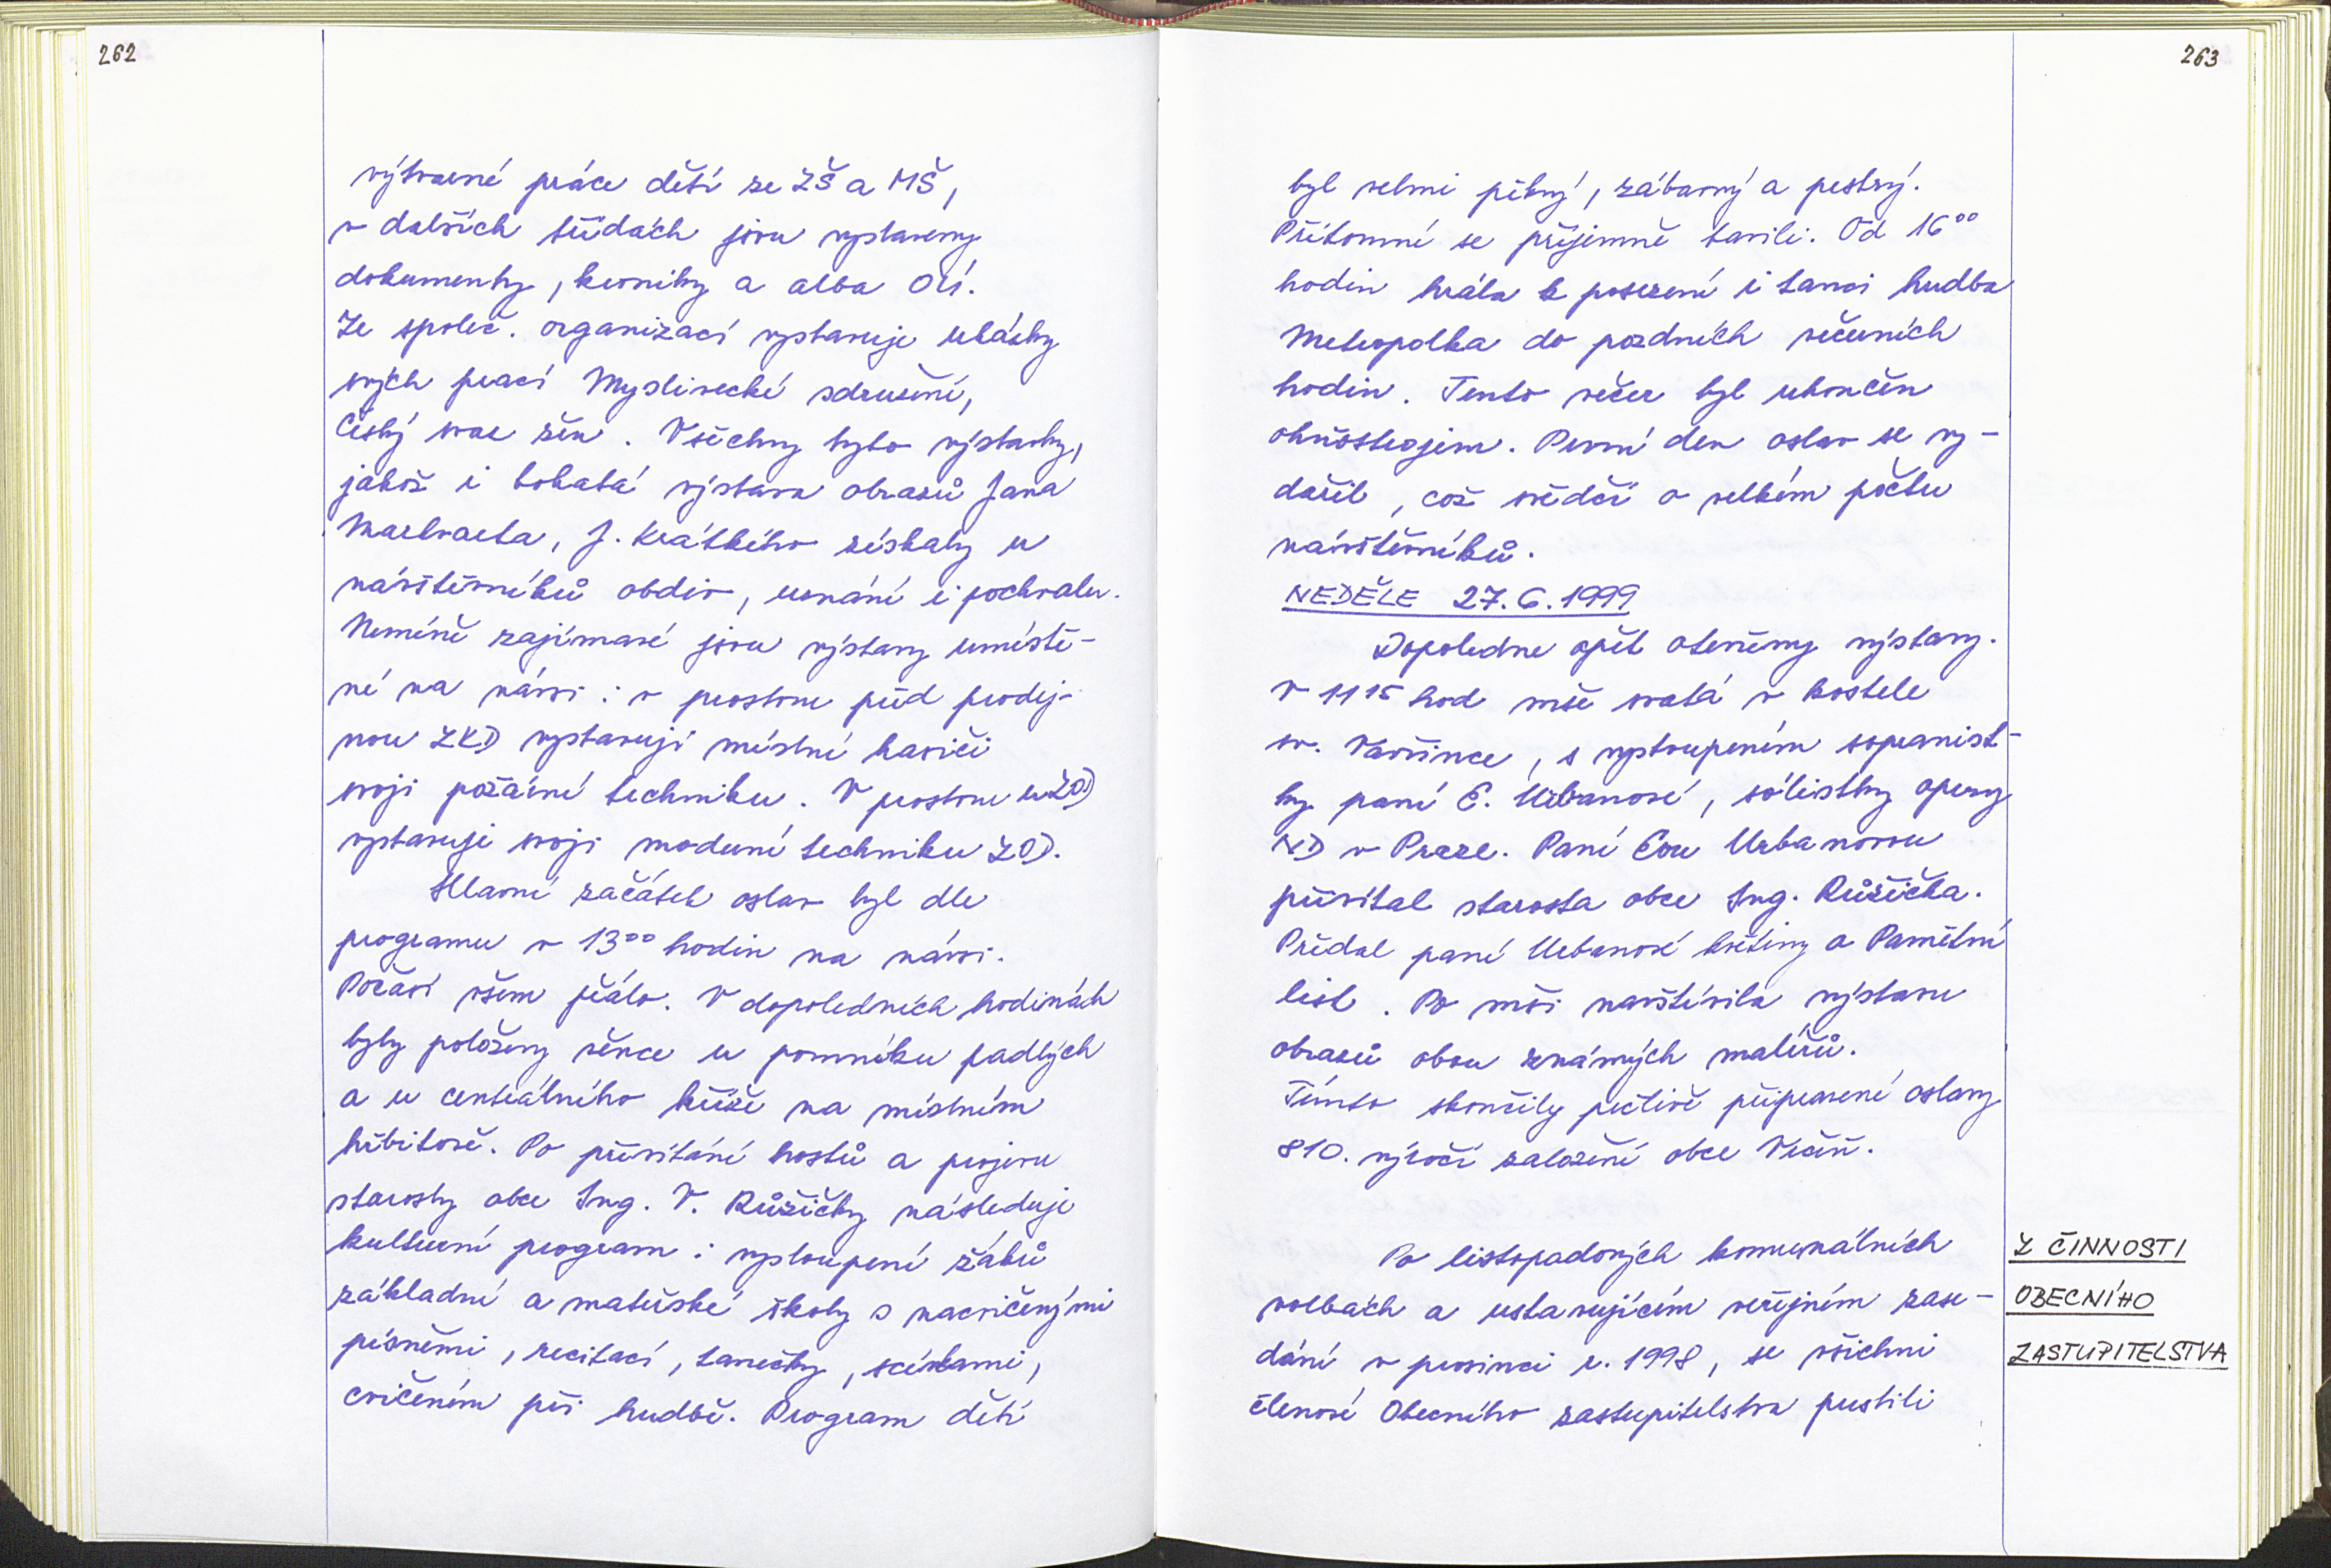 262
výtvarné práce dětí ze ZŠ a MŠ,
v dalších třídách jsou vystaveny
dokumenty, kroniky a alba OÚ.
Ze společ. organizací vystavuje ukázky
svých prací Myslivecké sdružení,
Český svaz žen. Všechny tyto výstavky,
jakož i bohatá výstava obrazů Jana
Markvarta, J. Krátkého získaly u
návštěvníků obdiv, uznání i pochvalu.
Neméně zajímavé jsou výstavy umístě-
né na návsi: v prostoru před prodej-
nou ZKD vystavují místní hasiči
svoji požární techniku. V prostoru u ZOD
vystavuje svoji moderní techniku ZOD.
Hlavní začátek oslav byl dle
programu v 13⁰⁰ hodin na návsi.
Počasí všem přálo. V dopoledních hodinách
byly položeny věnce u pomníku padlých
a u centrálního kříže na místním
hřbitově. Po přivítání hostů a projevu
starosty obce Ing. V. Růžičky následuje
kulturní program: vystoupení žáků
základní a mateřské školy s nacvičenými
písněmi, recitací, tanečky, scénkami,
cvičením při hudbě. Program dětí
263
byl velmi pěkný, zábavný a pestrý.
Přítomní se příjemně bavili. Od 16⁰⁰
hodin hrála k posezení i tanci hudba
Metropolka do pozdních večerních
hodin. Tento večer byl ukončen
ohňostrojem. První den oslav se vy-
dařil, což svědčí o velkém počtu
návštěvníků.
NEDĚLE 27.6.1999
Dopoledne opět otevřeny výstavy.
V 11¹⁵ hod mše svatá v kostele
sv. Vavřince, s vystoupením sopranist-
ky paní E. Urbanové, sólistky opery
ND v Praze. Paní Evu Urbanovou
přivítal starosta obce Ing. Růžička.
Předal paní Urbanové květiny a Pamětní
list. Po mši navštívila výstavu
obrazů obou známých malířů.
Tímto skončily pečlivě připravené oslavy
810. výročí založení obce Všeň.
Po listopadových komunálních
volbách a ustavujícím veřejném zase-
dání v prosinci r. 1998, se všichni
členové Obecního zastupitelstva pustili
Z ČINNOSTI
OBECNÍHO
ZASTUPITELSTVA